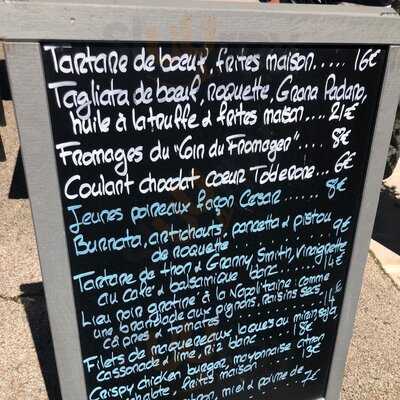 Tartare de boeuf, frites maison..... 16€
Tagliata de boeuf, roquette, Grana Padano,
huile à la truffe & frites maison.... 21€
Fromages du "Coin du Fromager".... 8€
Coulant chocolat coeur Toblerone... 6€
Jeunes poireaux façon Cesar....... 8€
Burrata, artichauts, pancetta & pistou
de roquette ............. 9€
Tartare de thon & Granny Smith, vinaigrette
au café & balsamique blanc...... 14€
Lieu noir gratiné à la Napolitaine comme
une brandade aux pignons, raisins secs,
câpres & tomates ........ 14€
Filets de maquereaux laqués au mirin, soja,
cassonade & lime, riz blanc ..... 18€
Crispy chicken burger, mayonnaise citron
frites maison ........ 13€
miel & poivre de
7€